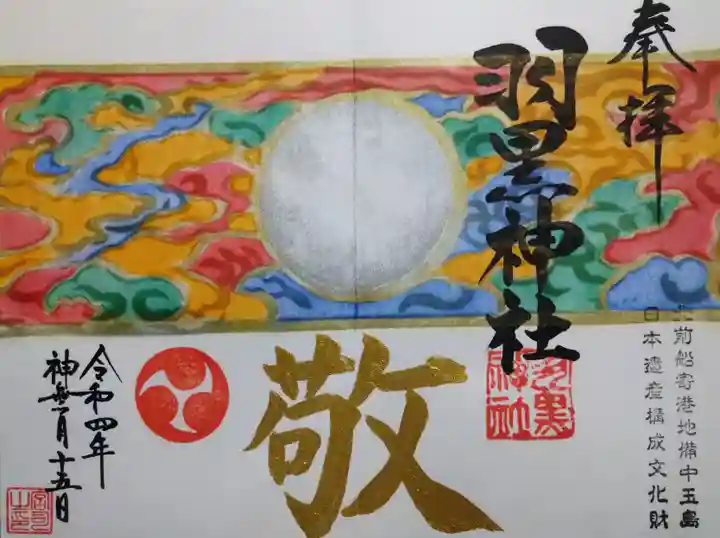 奉拝
羽黒神社
北前船寄港地備中玉島
日本遺産構成文化財
羽黒
神社
敬
令和四年
神無月十五日